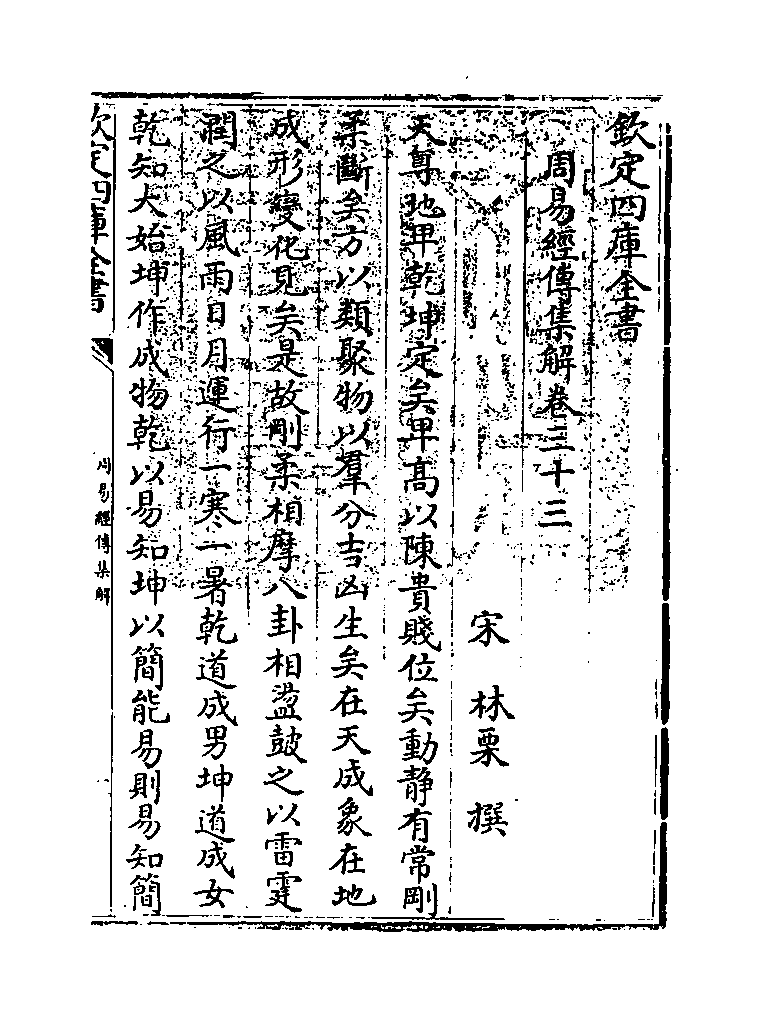 欽定四庫全書
周易經傳集解卷三十三
宋 林栗 撰
天尊地卑乾坤定矣卑髙以陳貴賤位矣動靜有常剛
柔斷矣方以類聚物以羣分吉凶生矣在天成象在地
成形變化見矣是故剛柔相摩八卦相盪鼓之以雷霆
潤之以風雨日月運行一寒一暑乾道成男坤道成女
乾知大始坤作成物乾以易知坤以簡能易則易知簡
欽定四庫全書
周易經傳集解